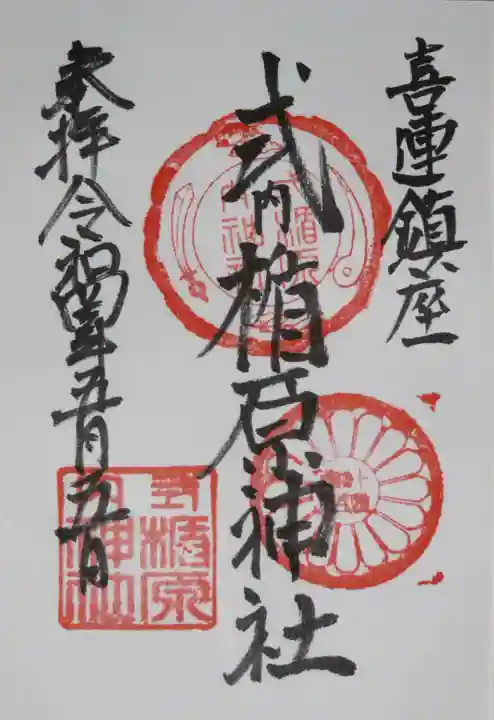 喜連鎮座
式内楯原神社
奉拝令和四年五月五日
式内楯原神社